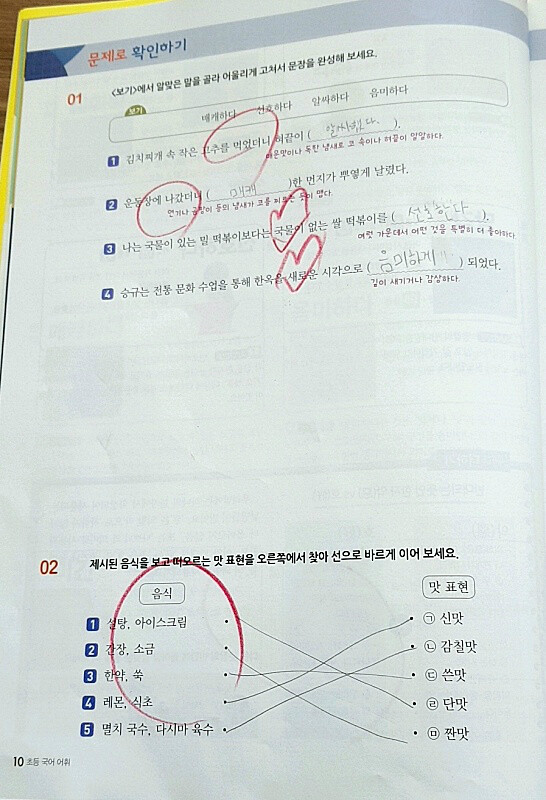 문제로 확인하기
01 <보기>에서 알맞은 말을 골라 어울리게 고쳐서 문장을 완성해 보세요.
보기
매캐하다 선호하다 알싸하다 음미하다
1 김치찌개 속 작은 고추를 먹었더니 혀끝이 ( 알싸했다. ).
매운맛이나 독한 냄새로 코 속이나 혀끝이 알알하다.
2 운동장에 나갔더니 ( 매캐 )한 먼지가 뿌옇게 날렸다.
연기나 곰팡이 등의 냄새가 코를 찌르는 듯이 맵다.
3 나는 국물이 있는 밀 떡볶이보다는 국물이 없는 쌀 떡볶이를 ( 선호한다 ).
여럿 가운데서 어떤 것을 특별히 더 좋아하다.
4 승규는 전통 문화 수업을 통해 한옥을 새로운 시각으로 ( 음미하게 ) 되었다.
깊이 새기거나 감상하다.
02 제시된 음식을 보고 떠오르는 맛 표현을 오른쪽에서 찾아 선으로 바르게 이어 보세요.
음식 맛 표현
1 설탕, 아이스크림 ㉠ 신맛
2 간장, 소금 ㉡ 감칠맛
3 한약, 쑥 ㉢ 쓴맛
4 레몬, 식초 ㉣ 단맛
5 멸치 국수, 다시마 육수 ㉤ 짠맛
10 초등 국어 어휘